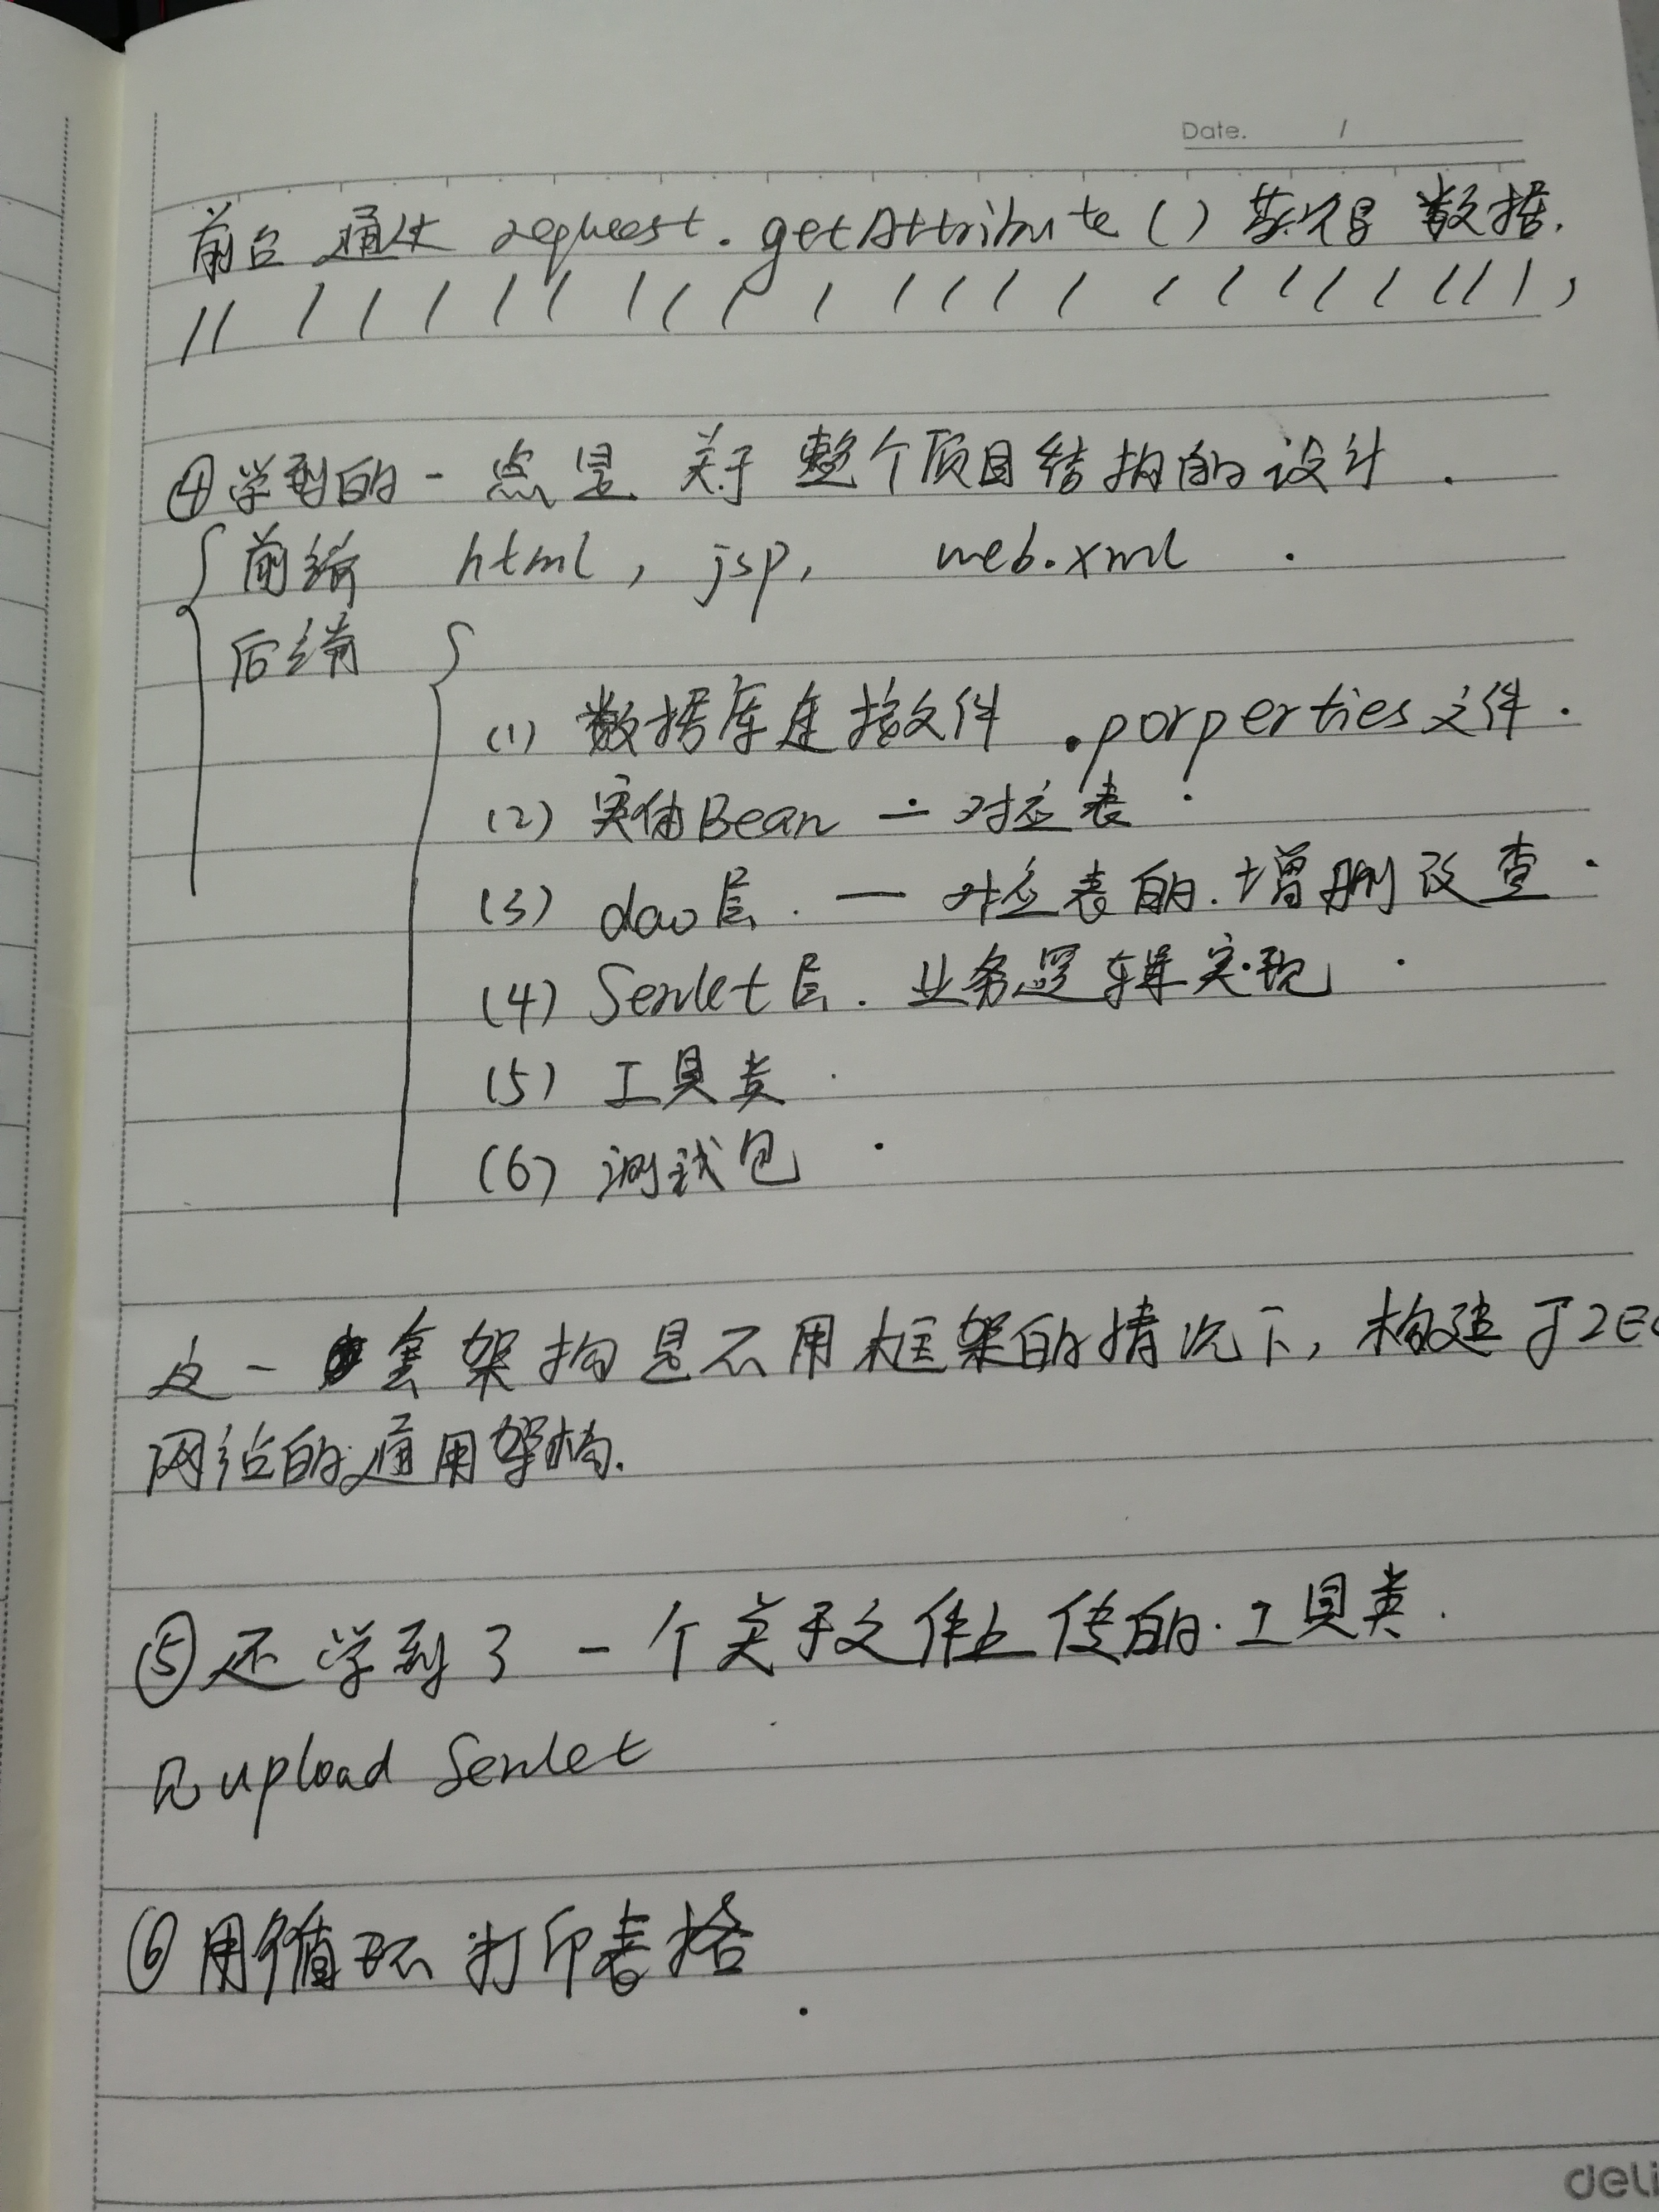 Date. /
前台通过 request.getAttribute() 获得数据.
// / / / / / / / / / / / / / / / / / / / / / / / /
④学到的一点是 关于 整个项目结构的设计.
前端 html, jsp, web.xml .
后端
(1) 数据库连接文件 .porperties文件.
(2) 实体Bean — 对应表.
(3) dao层. — 对应表的.增删改查.
(4) Servlet层. 业务逻辑实现.
(5) 工具类.
(6) 测试包.
这一套架构是不用框架的情况下, 构建J2E
网站的通用架构.
⑤还学到了一个关于文件上传的.工具类.
见upload Servlet
⑥用循环打印表格.
deli